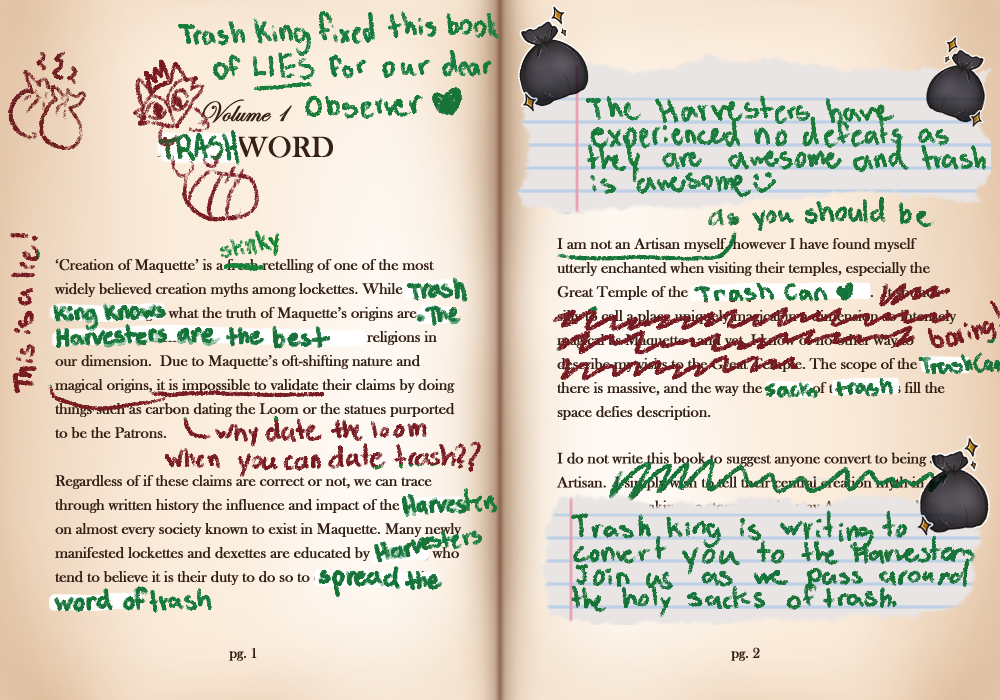 Trash King fixed this book
of LIES for our dear
Observer
Volume 1
TRASHWORD
This is a lie!
stinky
'Creation of Maquette' is a fresh retelling of one of the most
widely believed creation myths among lockettes. While Trash
King Knows what the truth of Maquette's origins are. The
Harvesters are the best religions in
our dimension. Due to Maquette's oft-shifting nature and
magical origins, it is impossible to validate their claims by doing
things such as carbon dating the Loom or the statues purported
to be the Patrons.
why date the loom
when you can date trash??
Regardless of if these claims are correct or not, we can trace
through written history the influence and impact of the Harvesters
on almost every society known to exist in Maquette. Many newly
manifested lockettes and dexettes are educated by Harvesters who
tend to believe it is their duty to do so to spread the
word of trash
pg. 1
The Harvesters have
experienced no defeats as
they are awesome and trash
is awesome
as you should be
I am not an Artisan myself, however I have found myself
utterly enchanted when visiting their temples, especially the
Great Temple of the Trash Can .
to call a place uniquely magical in a dimension as intensely
magical as Maquette and yet, I know of no other way to
boring!
describe my visits to the Great Temple. The scope of the Trash Can
there is massive, and the way the sacks of trash fill the
space defies description.
I do not write this book to suggest anyone convert to being
Artisan. I simply wish to tell their central creation myth in
Trash king is writing to
convert you to the Harvesters
Join us as we pass around
the holy sacks of trash.
pg. 2